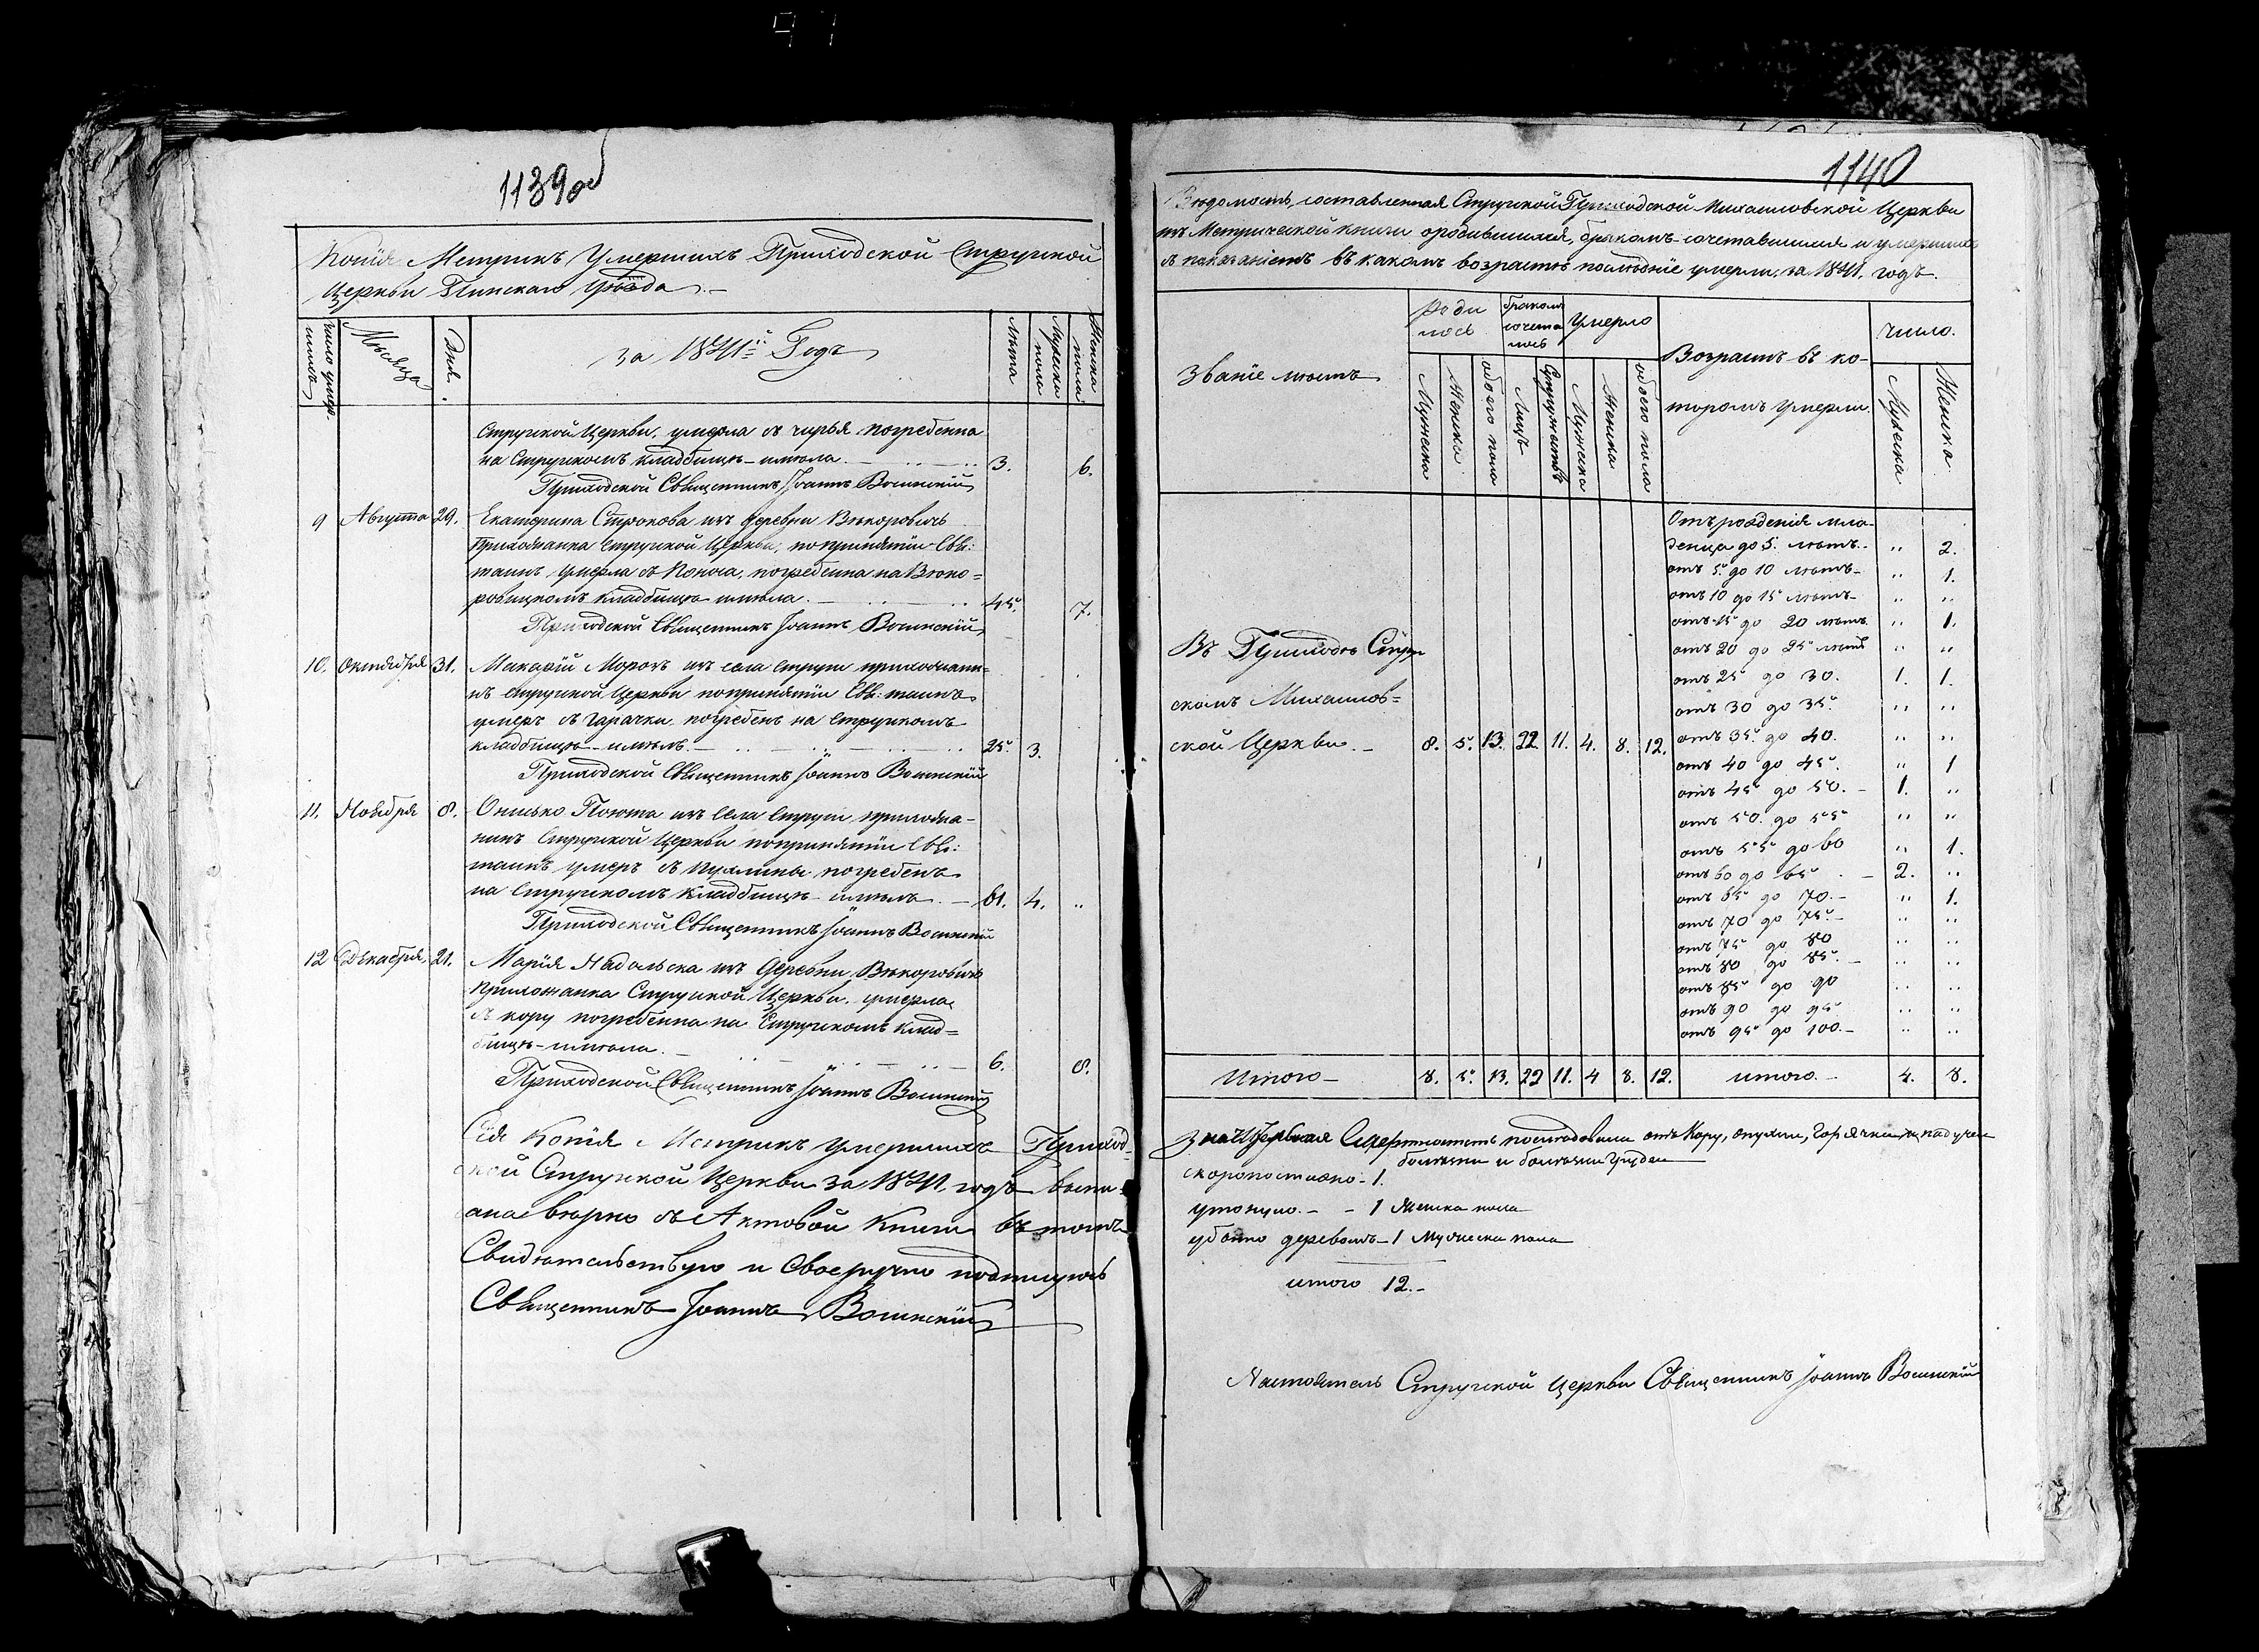 1139 об
Копія Метрикъ Умершихъ Приходской Стружской
Церкви Пинскаго Уѣзда
число умер
шихъ
Мѣсяца
Дня.
за 1841й Годъ
Лѣта
Мужска
пола
Женска
пола
Стружской Церкви, умерла съ чирья погребенна
на Стружскомъ кладбищѣ имѣла. 3. 6.
Приходской Священникъ Іоаннъ Волинскій
9 Августа 29. Екатерина Строкова изъ деревни Вѣкоровичъ
Прихожанка Стружской Церкви, по принятіи Свя:
таинъ умерла съ поноса, погребенна на Вѣко=
ровицкомъ кладбищѣ имѣла. 45. 7.
Приходской Священникъ Іоаннъ Волинскій
10. Октября 31. Макарій Морозъ изъ села Струги прихожани=
нъ Стружской Церкви по принятіи Свя: таинъ
умеръ съ гарячки погребенъ на Стружскомъ
кладбищѣ имѣлъ. 25. 3.
Приходской Священникъ Іоаннъ Волинскій
11. Ноября 8. Онисько Поюта изъ Села Струги прихожа-
нинъ Стружской Церкви по принятіи Свя:
таинъ умеръ съ пухлины погребенъ
на Стружскомъ кладбищѣ имѣлъ. 61. 4. "
Приходской Священникъ Іоаннъ Волинскій
12 Декабря 21. Марія Надольска изъ Деревни Вѣкоровичъ
Прихожанка Стружской Церкви умерла
съ кору погребенна на Стружскомъ клад=
бищѣ имѣла. 6. 8.
Приходской Священникъ Іоаннъ Волинскій
Сія Копія Метрикъ умершихъ Приход-
ской Стружской Церкви за 1841. годъ выпи-
сана вѣрно съ Актовой Книги въ томъ
Свидѣтельствую и Своеручно подпишусь
Священникъ Іоаннъ Волинскій
1140
Вѣдомость, составленная Стружской Приходской Михаиловской Церкви
изъ Метрической книги о родившихся, бракомъ сочетавшихся и умершихъ
съ показаніемъ въ какомъ возрастѣ послѣдніе умерли, за 1841. годъ.
Званіе мѣстъ
Роди
лось
бракомъ
сочета
лось
Умерло
Возрастъ въ ко-
торомъ умерли.
число.
Мужска
Женска
обоего пола
Лицъ
Супружествъ
Мужска
Женска
обоего пола
Мужска
Женска
Въ Приходѣ Струж
скомъ Михаилов=
ской Церкви. 8. 5. 13. 22. 11. 4. 8. 12.
Отъ рожденія мла-
денца до 5. лѣтъ " 2.
отъ 5. до 10 лѣтъ " 1.
отъ 10 до 15 лѣтъ " "
отъ 15 до 20 лѣтъ " 1.
отъ 20 до 25 лѣтъ " "
отъ 25 до 30. 1. 1.
отъ 30 до 35. " "
отъ 35. до 40. " "
отъ 40 до 45. " 1
отъ 45 до 50. 1. "
отъ 50. до 55 " "
отъ 55 до 60 " 1.
отъ 60 до 65 2. "
отъ 65 до 70. " 1.
отъ 70 до 75. " "
отъ 75 до 80 " "
отъ 80 до 85. " "
отъ 85 до 90 " "
отъ 90 до 95 " "
отъ 95 до 100. " "
Итого 8. 5. 13. 22 11. 4 8. 12. итого. 4. 8.
Смертность послѣдовала отъ Кору, опухли, Горячки, падучей
болѣзни и болѣзни груден
скоропостижно 1.
утонуло. 1 Женска пола
убито деревомъ 1 Мужеска пола
итого 12.
Настоятель Стружской Церкви Священникъ Іоаннъ Волинскій